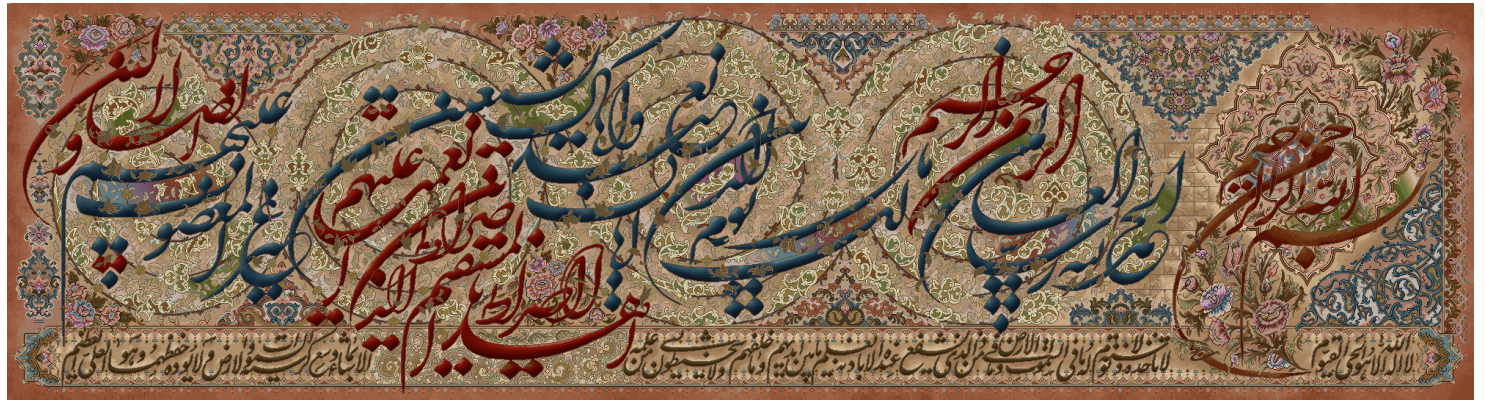 بسم الله الرحمن الرحیم
الحمد لله رب العالمین
الرحمن الرحیم
مالک یوم الدین
ایاک نعبد و ایاک نستعین
اهدنا الصراط المستقیم
صراط الذین انعمت علیهم
غیر المغضوب علیهم
و لا الضالین
الله لا اله الا هو الحی القیوم لا تاخذه سنة و لا نوم له ما فی السموات و ما فی الارض من ذا الذی یشفع عنده الا باذنه یعلم ما بین ایدیهم و ما خلفهم و لا یحیطون بشیء من علمه الا بما شاء وسع کرسیه السموات و الارض و لا یوده حفظهما و هو العلی العظیم